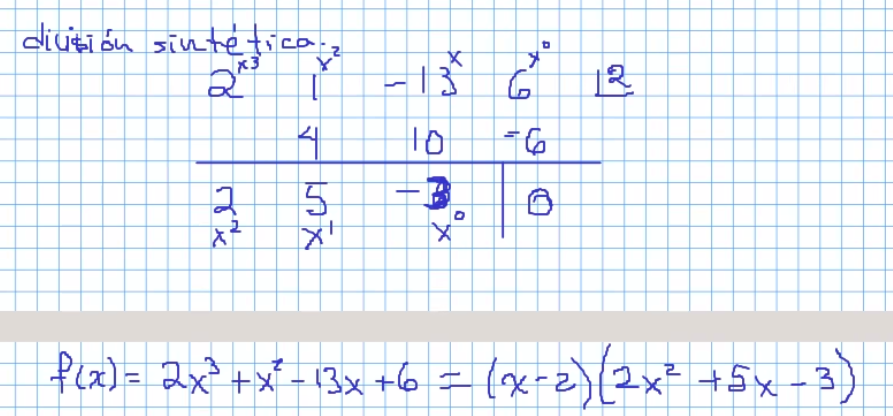 división sintética.
2x³ 1x² -13x 6x⁰ |2
4 10 -6
2 5 -3 | 0
x² x¹ x⁰
f(x) = 2x³ + x² - 13x + 6 = (x-2)(2x² + 5x - 3)